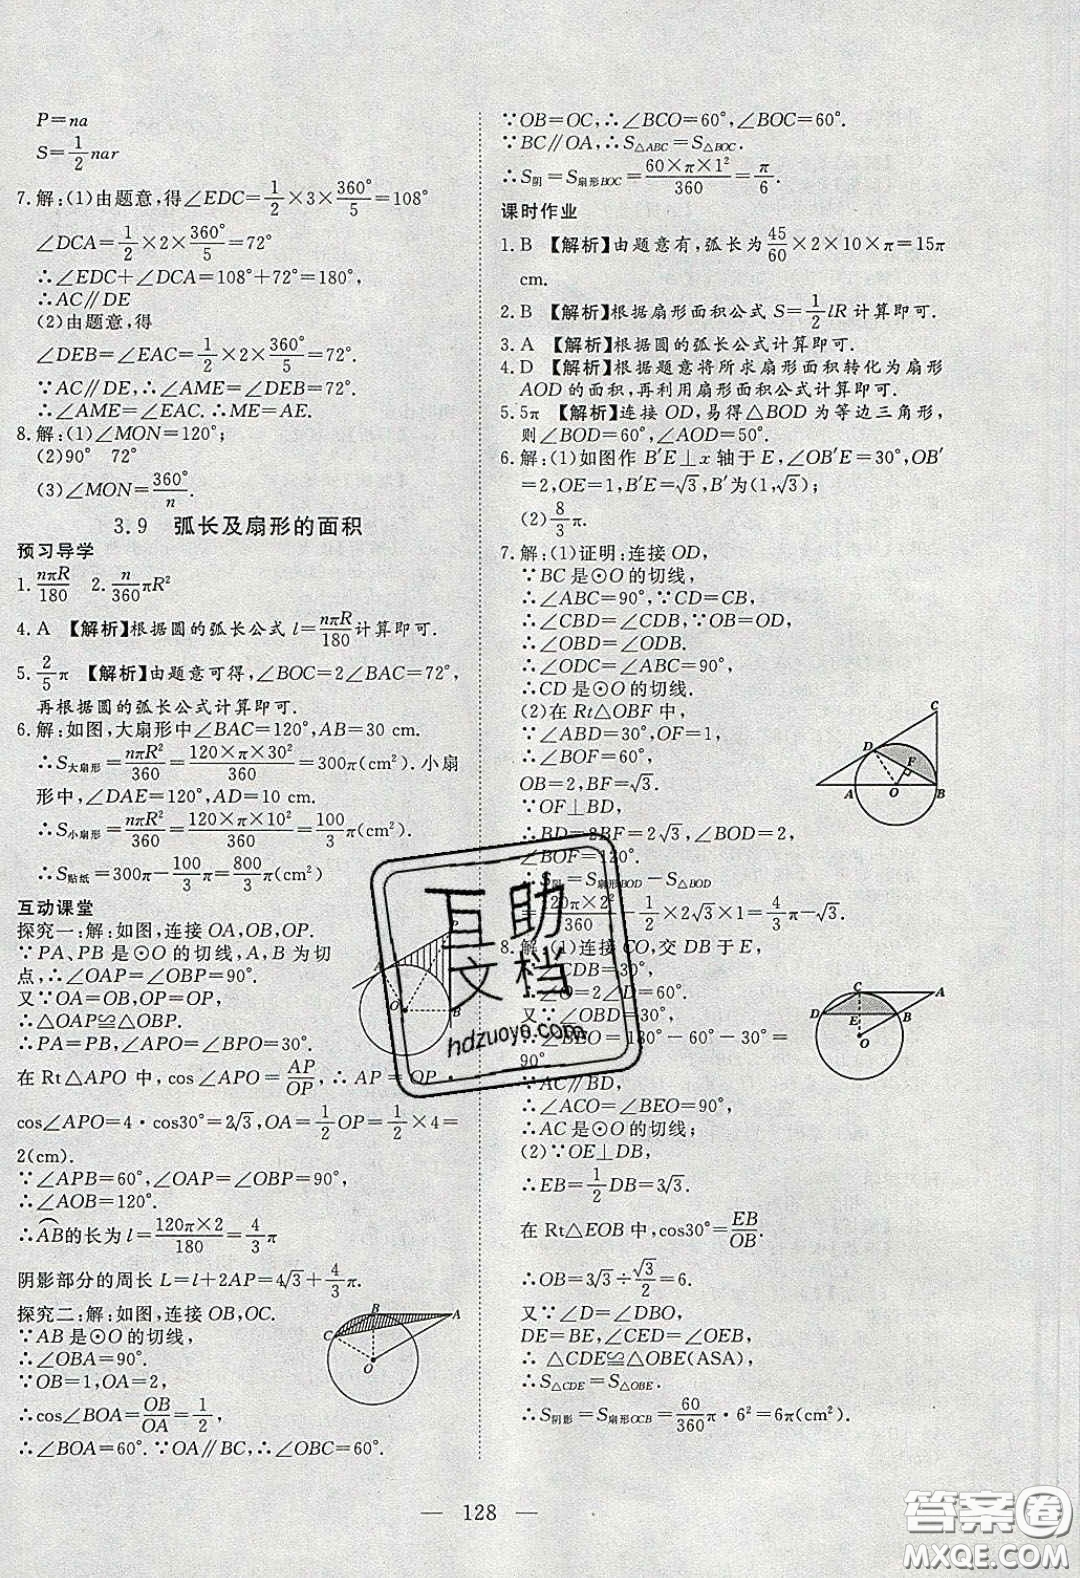 P=na
S=1/2 nar
7.解:(1)由题意,得∠EDC=1/2×3×360°/5=108°
∠DCA=1/2×2×360°/5=72°
∴∠EDC+∠DCA=108°+72°=180°,
∴AC∥DE
(2)由题意,得
∠DEB=∠EAC=1/2×2×360°/5=72°
∵AC∥DE,∴∠AME=∠DEB=72°
∴∠AME=∠EAC. ∴ME=AE.
8.解:(1)∠MON=120°;
(2)90° 72°
(3)∠MON=360°/n.
3.9 弧长及扇形的面积
预习导学
1.nπR/180 2.n/360 πR²
4.A 【解析】根据圆的弧长公式 l=nπR/180计算即可.
5.2/5π 【解析】由题意可得,∠BOC=2∠BAC=72°,
再根据圆的弧长公式计算即可.
6.解:如图,大扇形中∠BAC=120°,AB=30 cm.
∴S大扇形=nπR²/360=120×π×30²/360=300π(cm²).小扇
形中,∠DAE=120°,AD=10 cm.
∴S小扇形=nπR²/360=120×π×10²/360=100/3π(cm²)
∴S贴纸=300π-100/3π=800/3π(cm²)
互动课堂
探究一:解:如图,连接OA,OB,OP.
∵PA,PB是⊙O的切线,A,B为切
点,∴∠OAP=∠OBP=90°.
又∵OA=OB,OP=OP,
∴△OAP≌△OBP.
∴PA=PB,∠APO=∠BPO=30°.
在Rt△APO中,cos∠APO=AP/OP,∴AP=OP·
cos∠APO=4·cos30°=2√3,OA=1/2OP=1/2×4=
2(cm).
∵∠APB=60°,∠OAP=∠OBP=90°,
∴∠AOB=120°.
∴AB的长为 l=120π×2/180=4/3π
阴影部分的周长 L=l+2AP=4√3+4/3π.
探究二:解:如图,连接OB,OC.
∵AB是⊙O的切线,
∴∠OBA=90°.
∵OB=1,OA=2,
∴cos∠BOA=OB/OA=1/2,
∴∠BOA=60°. ∵OA∥BC,∴∠OBC=60°.
∵OB=OC,∴∠BCO=60°,∠BOC=60°.
∵BC∥OA,∴S△ABC=S△BOC.
∴S阴=S扇形BOC=60×π×1²/360=π/6.
课时作业
1.B 【解析】由题意有,弧长为45/60×2×10×π=15π
cm.
2.B 【解析】根据扇形面积公式 S=1/2 lR 计算即可.
3.A 【解析】根据圆的弧长公式计算即可.
4.D 【解析】根据题意将所求扇形面积转化为扇形
AOD的面积,再利用扇形面积公式计算即可.
5.5π 【解析】连接OD,易得△BOD为等边三角形,
则∠BOD=60°,∠AOD=50°.
6.解:(1)如图作B′E⊥x轴于E,∠OB′E=30°,OB′
=2,OE=1,B′E=√3,B′为(1,√3);
(2)8/3π.
7.解:(1)证明:连接OD,
∵BC是⊙O的切线,
∴∠ABC=90°,∵CD=CB,
∴∠CBD=∠CDB,∵OB=OD,
∴∠OBD=∠ODB.
∴∠ODC=∠ABC=90°,
∴CD是⊙O的切线.
(2)在Rt△OBF中,
∵∠ABD=30°,OF=1,
∴∠BOF=60°,
OB=2,BF=√3.
∵OF⊥BD,
∴BD=2BF=2√3,∠BOD=2
∠BOF=120°.
∴S阴=S扇形BOD-S△BOD
=120π×2²/360-1/2×2√3×1=4/3π-√3.
8.解:(1)连接CO,交DB于E,
∠CDB=30°,
∴∠O=2∠CDB=60°,
又∵∠OBD=30°,
∴∠BEO=180°-60°-30°=
90°.
∵AC∥BD,
∴∠ACO=∠BEO=90°,
∴AC是⊙O的切线;
(2)∵OE⊥DB,
∴EB=1/2DB=3√3,
在Rt△EOB中,cos30°=EB/OB.
∴OB=3√3÷√3/2=6.
又∵∠D=∠DBO,
DE=BE,∠CED=∠OEB,
∴△CDE≌△OBE(ASA),
∴S△CDE=S△OBE,
∴S阴影=S扇形OCB=60/360π·6²=6π(cm²).
P
A
O
B
B
A
C
O
C
D
F
A
O
B
C
A
D
E
B
O
互助文档
hdzuoye.com
— 128 —
答案圈
MXQE.COM